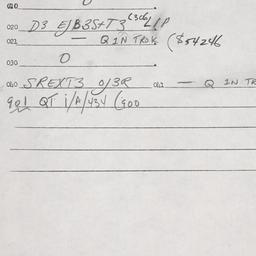 010
020 D3 E/B3S+T3 (3006 L/P
021 — Q IN TRDK ($54246
030 0
040 SREXT3 0/3R 041 — Q IN TR
901 QT i/A/434 (900